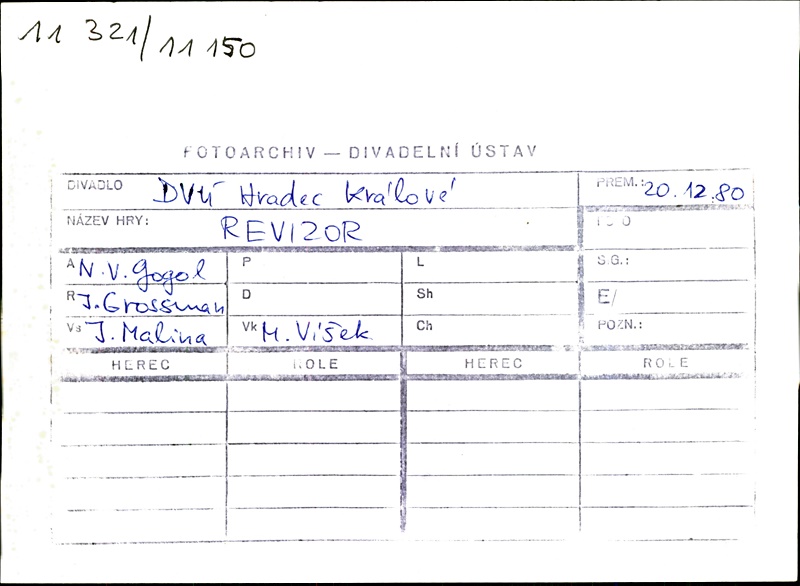 11 321/11 150
FOTOARCHIV — DIVADELNÍ ÚSTAV
DIVADLO DVÚ Hradec Králové PREM.: 20.12.80
NÁZEV HRY: REVIZOR FOTO
A N. V. Gogol P L S.G.:
R J. Grossman D Sh E/
Vs J. Malina Vk M. Víšek Ch POZN.:
HEREC ROLE HEREC ROLE